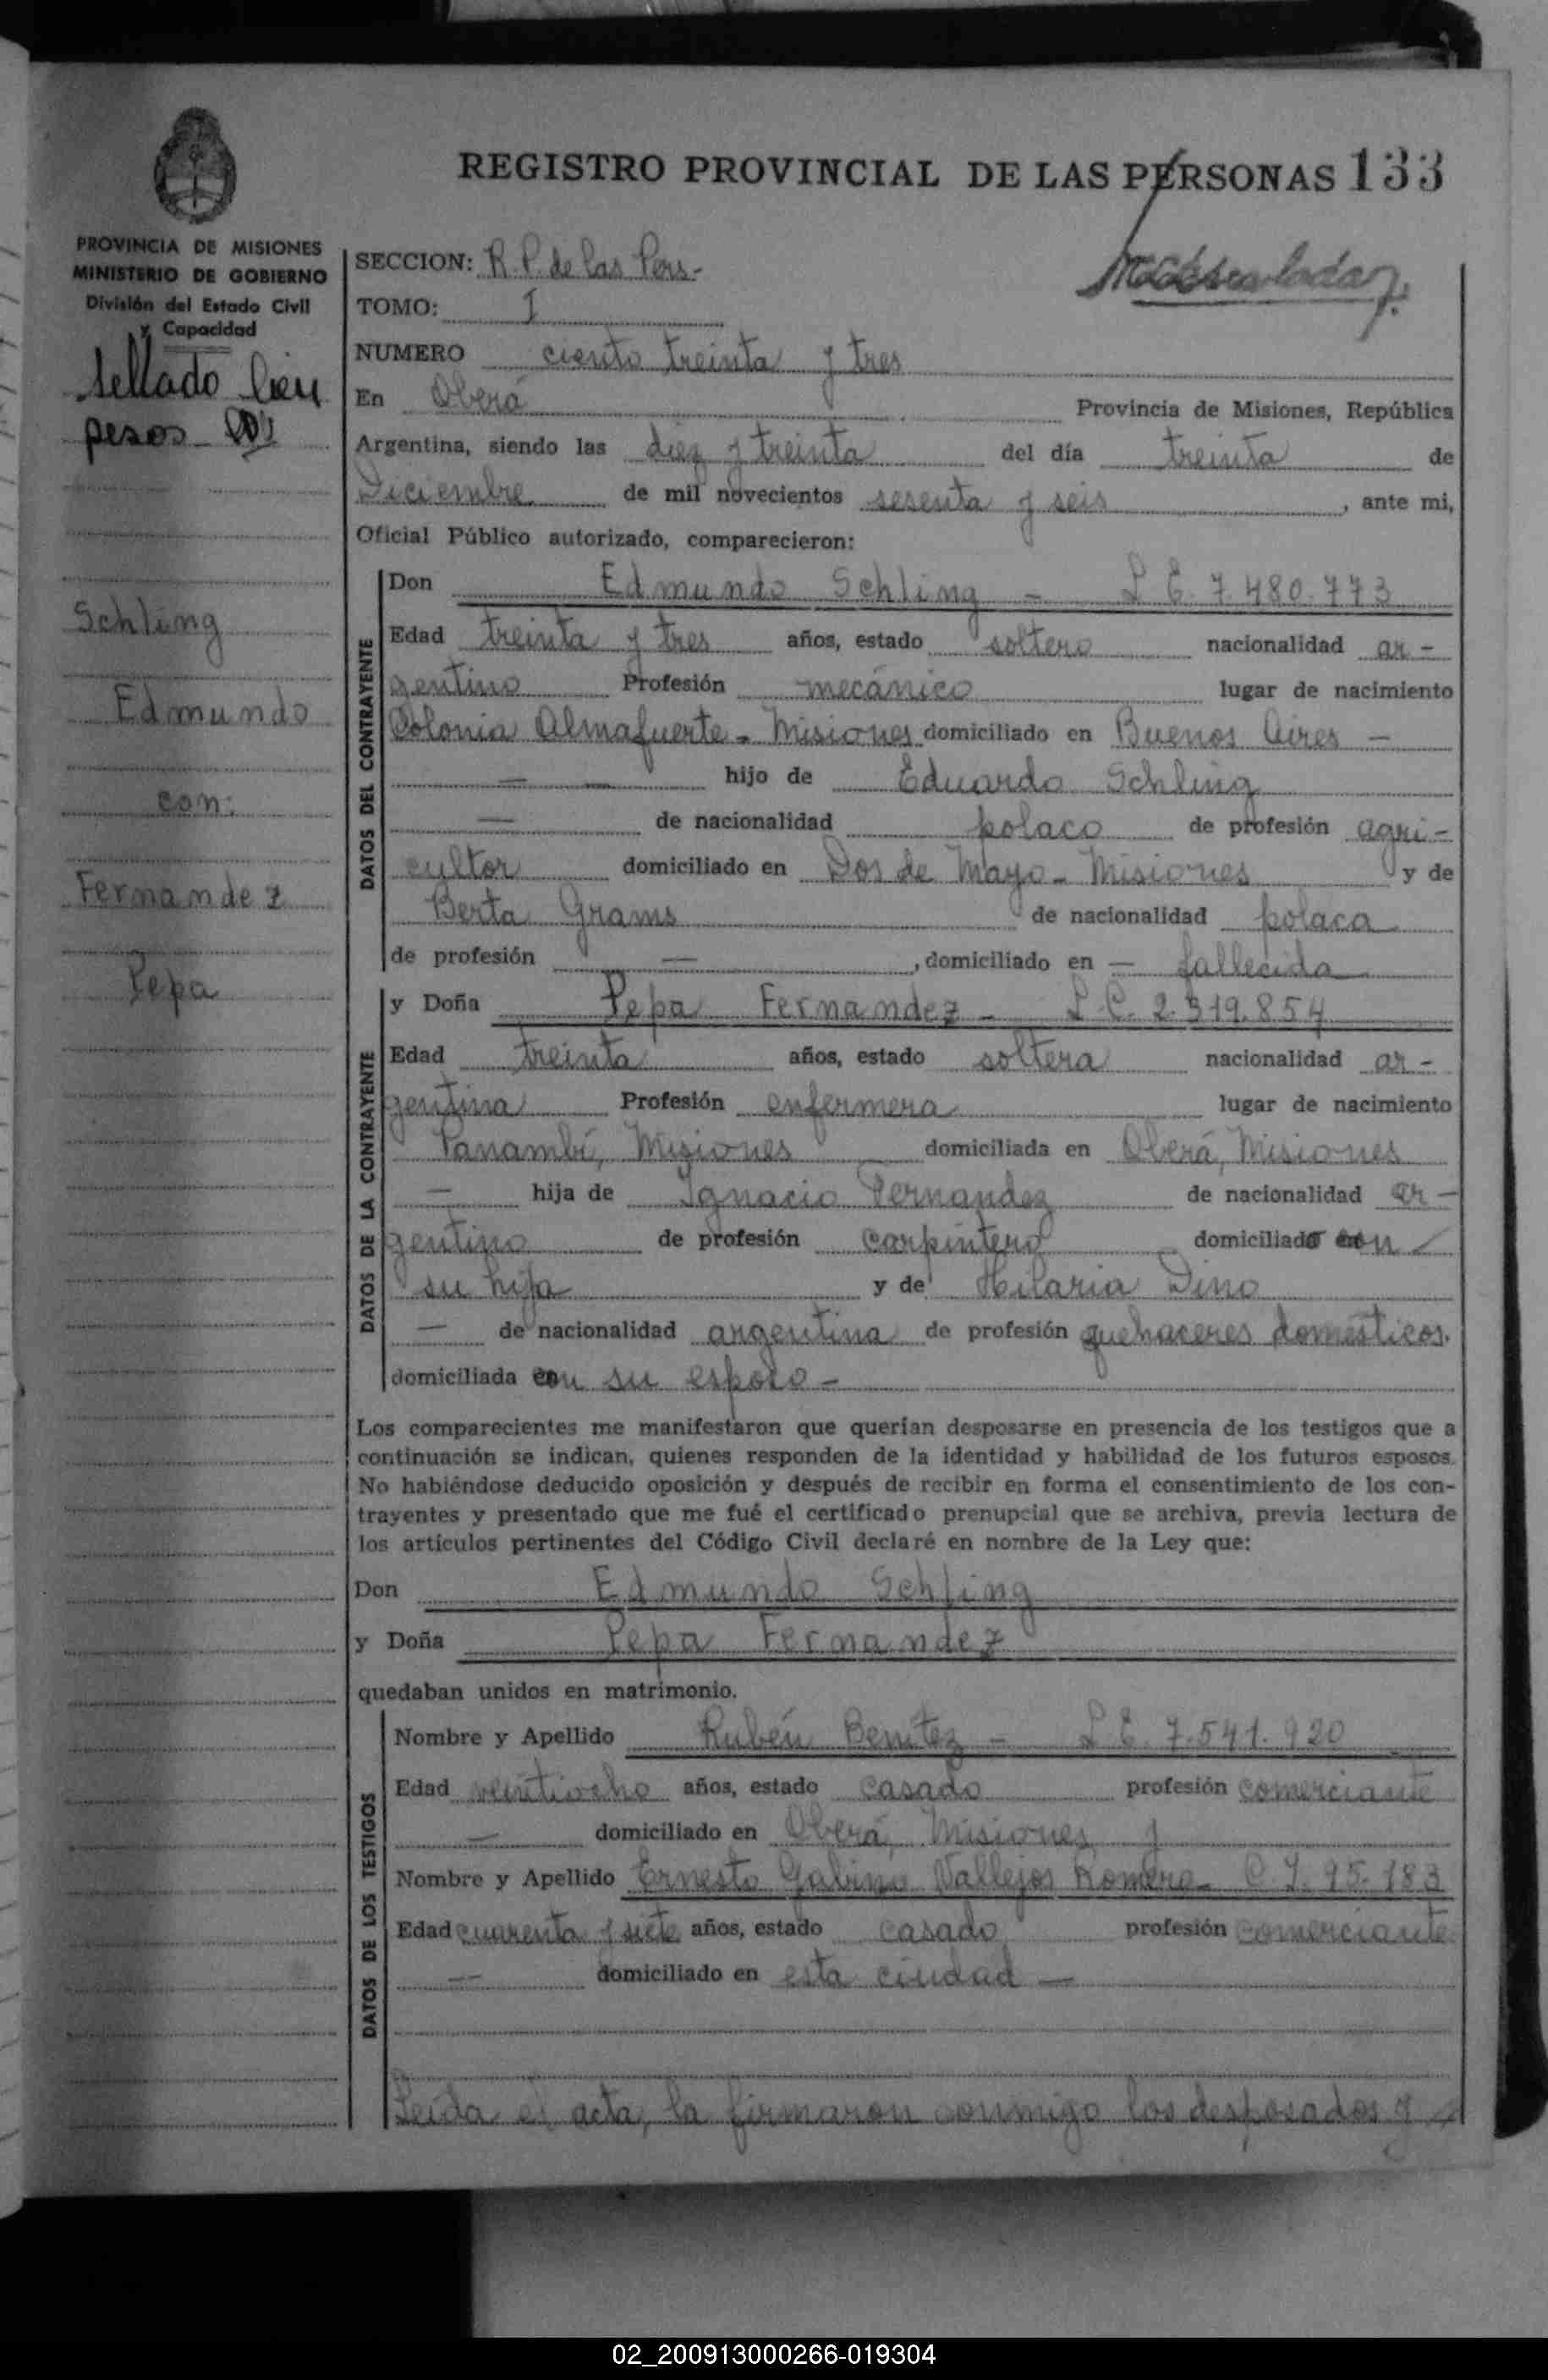 REGISTRO PROVINCIAL DE LAS PERSONAS 133
PROVINCIA DE MISIONES
MINISTERIO DE GOBIERNO
División del Estado Civil
y Capacidad
Sellado Cien
pesos
Schling
Edmundo
con:
Fernandez
Pepa
SECCION: R. P. de las Pers.-
TOMO: I
NUMERO ciento treinta y tres
En Oberá Provincia de Misiones, República
Argentina, siendo las diez y treinta del día treinta de
Diciembre de mil novecientos sesenta y seis, ante mi,
Oficial Público autorizado, comparecieron:
DATOS DEL CONTRAYENTE
Don Edmundo Schling - L E. 7.480.773
Edad treinta y tres años, estado soltero nacionalidad ar-
gentino Profesión mecánico lugar de nacimiento
Colonia Almafuerte - Misiones domiciliado en Buenos Aires -
— — hijo de Eduardo Schling
— de nacionalidad polaco de profesión agri-
cultor domiciliado en Dos de Mayo - Misiones y de
Berta Grams de nacionalidad polaca
de profesión —, domiciliado en — fallecida
DATOS DE LA CONTRAYENTE
y Doña Pepa Fernandez - L.C. 2.319.854
Edad treinta años, estado soltera nacionalidad ar-
gentina Profesión enfermera lugar de nacimiento
Panambí, Misiones domiciliada en Oberá, Misiones
— hija de Ignacio Fernandez de nacionalidad ar-
gentino de profesión carpintero domiciliado con
su hija y de Hilaria Dino
— de nacionalidad argentina de profesión quehaceres domésticos.
domiciliada con su esposo -
Los comparecientes me manifestaron que querían desposarse en presencia de los testigos que a
continuación se indican, quienes responden de la identidad y habilidad de los futuros esposos.
No habiéndose deducido oposición y después de recibir en forma el consentimiento de los con-
trayentes y presentado que me fué el certificado prenupcial que se archiva, previa lectura de
los artículos pertinentes del Código Civil declaré en nombre de la Ley que:
Don Edmundo Schling
y Doña Pepa Fernandez
quedaban unidos en matrimonio.
DATOS DE LOS TESTIGOS
Nombre y Apellido Rubén Benitez - L E. 7.541.920
Edad veintiocho años, estado casado profesión comerciante
— domiciliado en Oberá, Misiones y
Nombre y Apellido Ernesto Gabino Vallejos Romero - C. I. 95.183
Edad cuarenta y siete años, estado casado profesión comerciante
— domiciliado en esta ciudad —
Leida el acta, la firmaron conmigo los desposados y
02_200913000266-019304